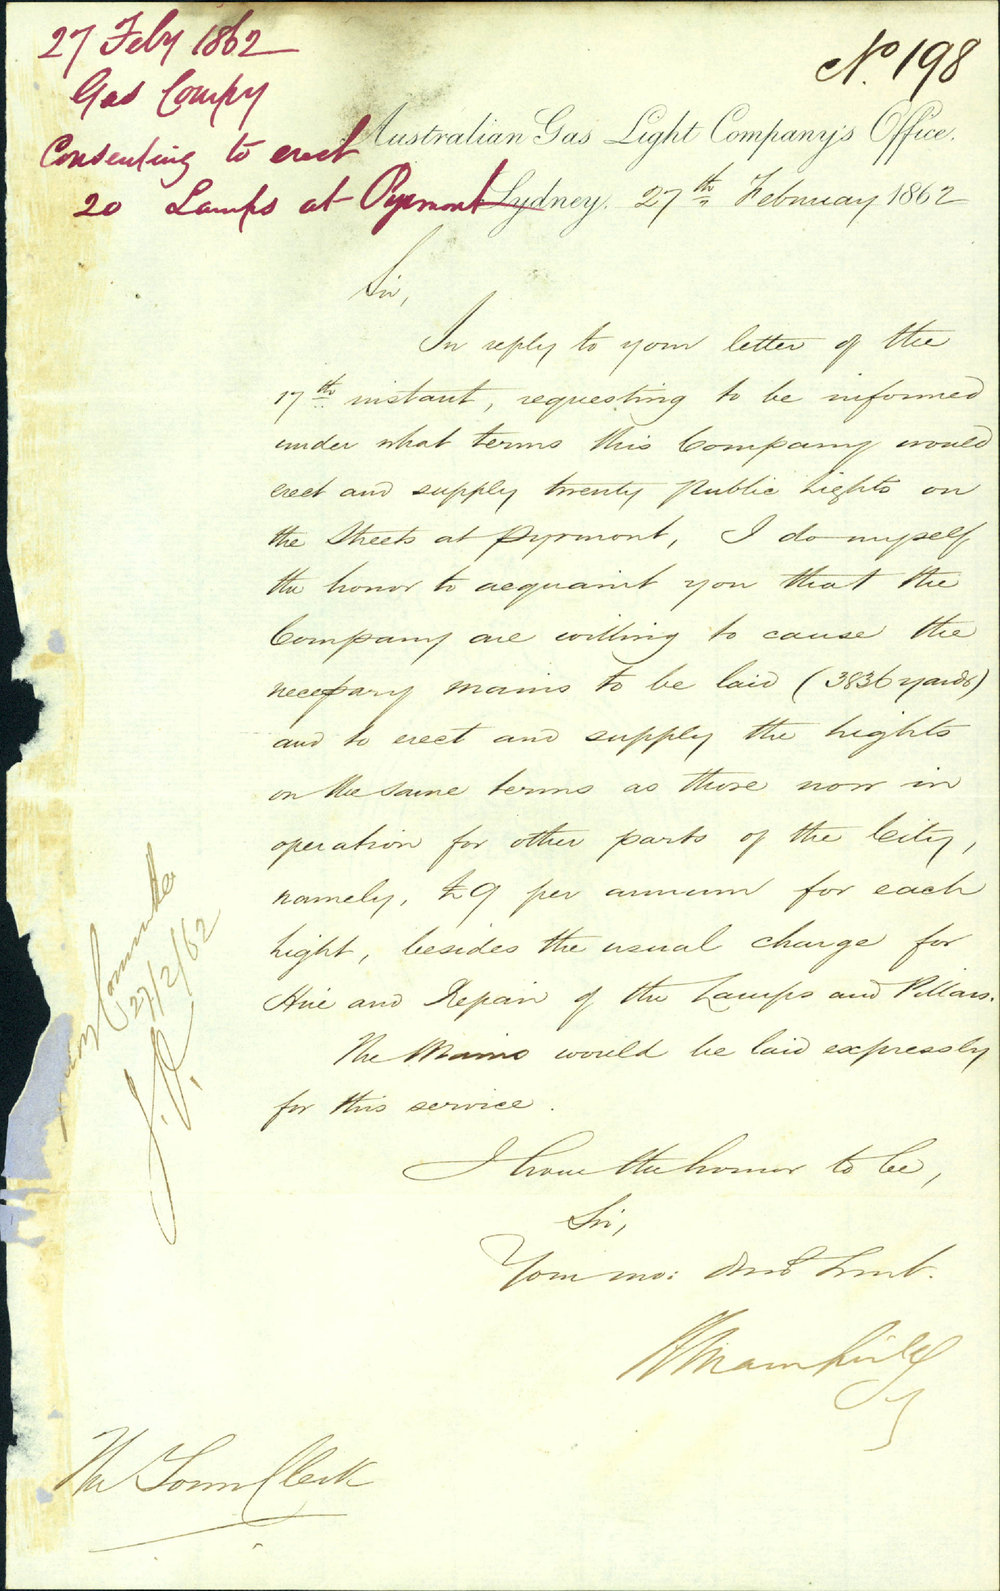 27 Feby 1862
Gas Compy
Consenting to erect
20 Lamps at Pyrmont
No. 198
Australian Gas Light Company's Office.
Sydney. 27th February 1862
Sir,
In reply to your letter of the
17th instant, requesting to be informed
under what terms this Company would
erect and supply twenty Public Lights on
the Streets at Pyrmont, I do myself
the honor to acquaint you that the
Company are willing to cause the
necessary mains to be laid (3836 yards)
and to erect and supply the Lights
on the same terms as those now in
operation for other parts of the City,
namely, £9 per annum for each
Light, besides the usual charge for
Hire and Repair of the Lamps and Pillars.
The Mains would be laid expressly
for this service.
I have the honor to be,
Sir,
Your mo: Obedt Servt.
The Town Clerk
Committee
27/2/62